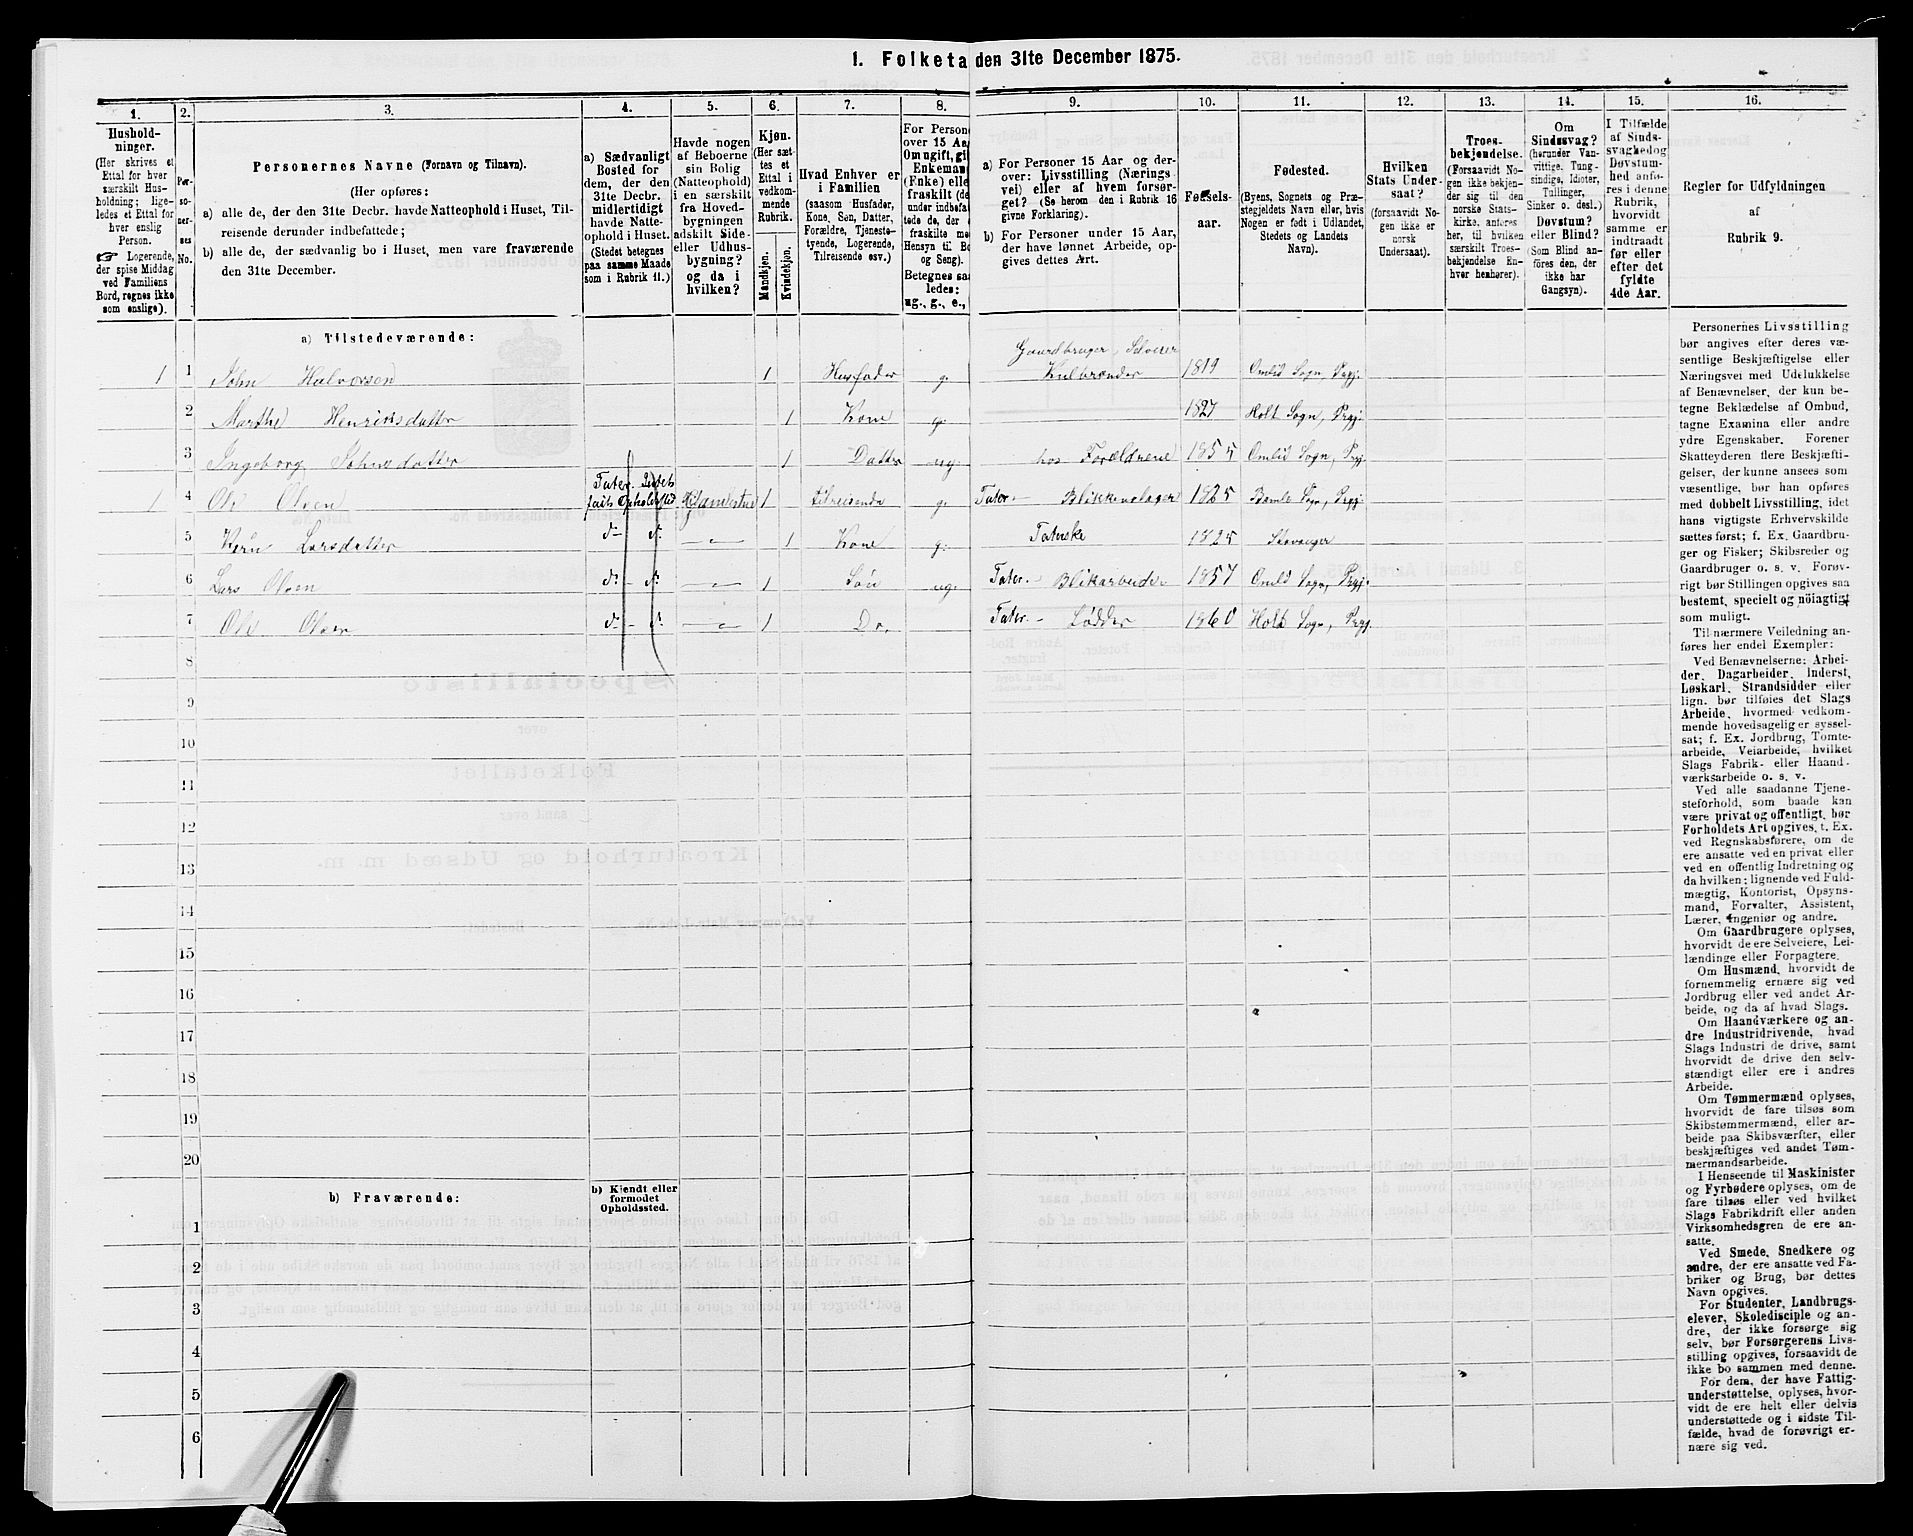 1. Folketa den 31te December 1875.
1. 2. 3. 4. 5. 6. 7. 8. 9. 10. 11. 12. 13. 14. 15. 16.
Hushold-
ninger.
(Her skrives et
Ettal for hver
særskilt Hus-
holdning; lige-
ledes et Ettal for
hver enslig
Person.
☞ Logerende,
der spise Middag
ved Familiens
Bord, regnes ikke
som enslige).
Per-
so-
ner-
nes
No.
Personernes Navne (Fornavn og Tilnavn).
(Her opføres:
a) alle de, der den 31te Decbr. havde Natteophold i Huset, Til-
reisende derunder indbefattede;
b) alle de, der sædvanlig bo i Huset, men vare fraværende
den 31te December.
a) Sædvanligt
Bosted for
dem, der den
31te Decbr.
midlertidigt
havde Natte-
ophold i Huset.
(Stedet betegnes
paa samme Maade
som i Rubrik 11.)
Havde nogen
af Beboerne
sin Bolig
(Natteophold)
i en særskilt
fra Hoved-
bygningen
adskilt Side-
eller Udhus-
bygning?
og da i
hvilken?
Kjøn.
(Her sæt-
tes et
Ettal i
vedkom-
mende
Rubrik.
Mandkjøn.
Kvindekjøn.
Hvad Enhver er
i Familien
(saasom Husfader,
Kone, Søn, Datter,
Forældre, Tjeneste-
tyende, Logerende,
Tilreisende osv.)
For Persone
over 15 Aar
Om ugift, gif
Enkeman
(Enke) elle
fraskilt (de
under indbefat
tede de, der
fraskilte m
Hensyn til Bo
og Seng).
Betegnes saa
ledes:
ug., g., e.,
a) For Personer 15 Aar og der-
over: Livsstilling (Nærings
vei) eller af hvem forsør-
get? (Se herom den i Rubrik 16
givne Forklaring).
b) For Personer under 15 Aar,
der have lønnet Arbeide, op-
gives dettes Art.
Fødsels-
aar.
Fødested.
(Byens, Sognets og Præ-
stegjeldets Navn eller, hvis
Nogen er født i Udlandet,
Stedets og Landets
Navn).
Hvilken
Stats Under-
saat?
(forsaavidt No-
gen ikke er
norsk
Undersaat).
Troes-
bekjendelse.
(Forsaavidt No-
gen ikke bekjen-
der sig til den
norske Stats-
kirke, anføres
her, til hvilken
særskilt Troes-
bekjendelse En-
hver henhører).
Om
Sindssvag?
(herunder Van-
vittige, Tung-
sindige, Idioter,
Tullinger,
Sinker o. desl.)
Døvstum?
eller Blind?
(Som Blind an-
føres den, der
ikke har
Gangsyn).
I Tilfælde
af Sinds-
svaghed og
Døvstum-
hed anfø-
res i denne
Rubrik,
hvorvidt
samme er
indtraadt
før eller
efter det
fyldte
4de Aar.
Regler for Udfyldningen
af
Rubrik 9.
a) Tilstedeværende:
Gaardbruger, Selveier
1 1 John Halvorsen 1 Husfader g. Kulbrænder 1819 Omlid Sogn, Prgj.
2 Marthe Henriksdatter 1 Kone g. 1827 Holt Sogn, Prgj.
3 Ingeborg Johnsdatter 1 Datter ug. hos Forældrene 1855 Omlid Sogn, Prgj.
Tater. Intet
1 4 Ole Olsen fast Opholdssted 1 tilreisende g. Tater. - Blikkenslager 1825 Bamle Sogn, Prgj.
5 Larsdatter d° - d° 1 Kone g. Taterske 1825 Stavanger
6 Lars Olsen d° - d° 1 Søn ug. Tater. - Blikarbeider 1857 Omlid Sogn, Prgj.
7 Ole Olsen d° - d° 1 Do. Tater. - Lodder 1860 Holt Sogn, Prgj.
8
9
10
11
12
13
14
15
16
17
18
19
20
b) Fraværende:
b) Kjendt eller
formodet
Opholdssted.
1
2
3
4
5
6
Personernes Livsstilling
bør angives efter deres væ-
sentlige Beskjæftigelse eller
Næringsvei med Udelukkelse
af Benævnelser, der kun be-
tegne Beklædelse af Ombud,
tagne Examina eller andre
ydre Egenskaber. Forener
Skatteyderen flere Beskjæfti-
gelser, der kunne ansees som
væsentlige, bør han opføres
med dobbelt Livsstilling, idet
hans vigtigste Erhvervskilde
sættes først; f. Ex. Gaardbru-
ger og Fisker; Skibsreder og
Gaardbruger o. s. v. Forøv-
rigt bør Stillingen opgives saa
bestemt, specielt og nøiagtigt
som muligt.
Til nærmere Veiledning an-
føres her endel Exempler:
Ved Benævnelserne: Arbei-
der, Dagarbeider, Inderst,
Løskarl, Strandsidder eller
lign. bør tilføies det Slags
Arbeide, hvormed vedkom-
mende hovedsagelig er syssel-
sat; f. Ex. Jordbrug, Tomte-
arbeide, Veiarbeide, hvilket
Slags Fabrik- eller Haand-
værksarbeide o. s. v.
Ved alle saadanne Tjene-
steforhold, som baade kan
være privat og offentligt, bør
Forholdets Art opgives, t. Ex.
ved Regnskabsførere, om de
ere ansatte ved en privat eller
ved en offentlig Indretning og
da hvilken; lignende ved Fuld-
mægtig, Kontorist, Opsyns-
mand, Forvalter, Assistent,
Lærer, Ingeniør og andre.
Om Gaardbrugere oplyses,
hvorvidt de ere Selveiere, Lei-
lændinge eller Forpagtere.
Om Husmænd, hvorvidt de
fornemmelig ernære sig ved
Jordbrug eller ved andet Ar-
beide, og da af hvad Slags.
Om Haandværkere og an-
dre Industridrivende, hvad
Slags Industri de drive, samt
hvorvidt de drive den selv-
stændigt eller ere i andres
Arbeide.
Om Tømmermænd oplyses,
hvorvidt de fare tilsøs som
Skibstømmermænd, eller ar-
beide paa Skibsværfter, eller
beskjæftiges ved andet Tøm-
mermandsarbeide.
I Henseende til Maskinister
og Fyrbødere oplyses, om de
fare tilsøs eller ved hvilket
Slags Fabrikdrift eller anden
Virksomhedsgren de ere an-
satte.
Ved Smede, Snedkere og
andre, der ere ansatte ved Fa-
briker og Brug, bør dettes
Navn opgives.
For Studenter, Landbrugs-
elever, Skoledisciple og an-
dre, der ikke forsørge sig
selv, bør Forsørgerens Livs-
stilling opgives, forsaavidt de
ikke bo sammen med denne.
For dem, der have Fattig-
understøttelse, oplyses, hvor-
vidt de ere helt eller delvis
understøttede og i sidste Til-
fælde, hvad de forøvrigt er-
nære sig ved.